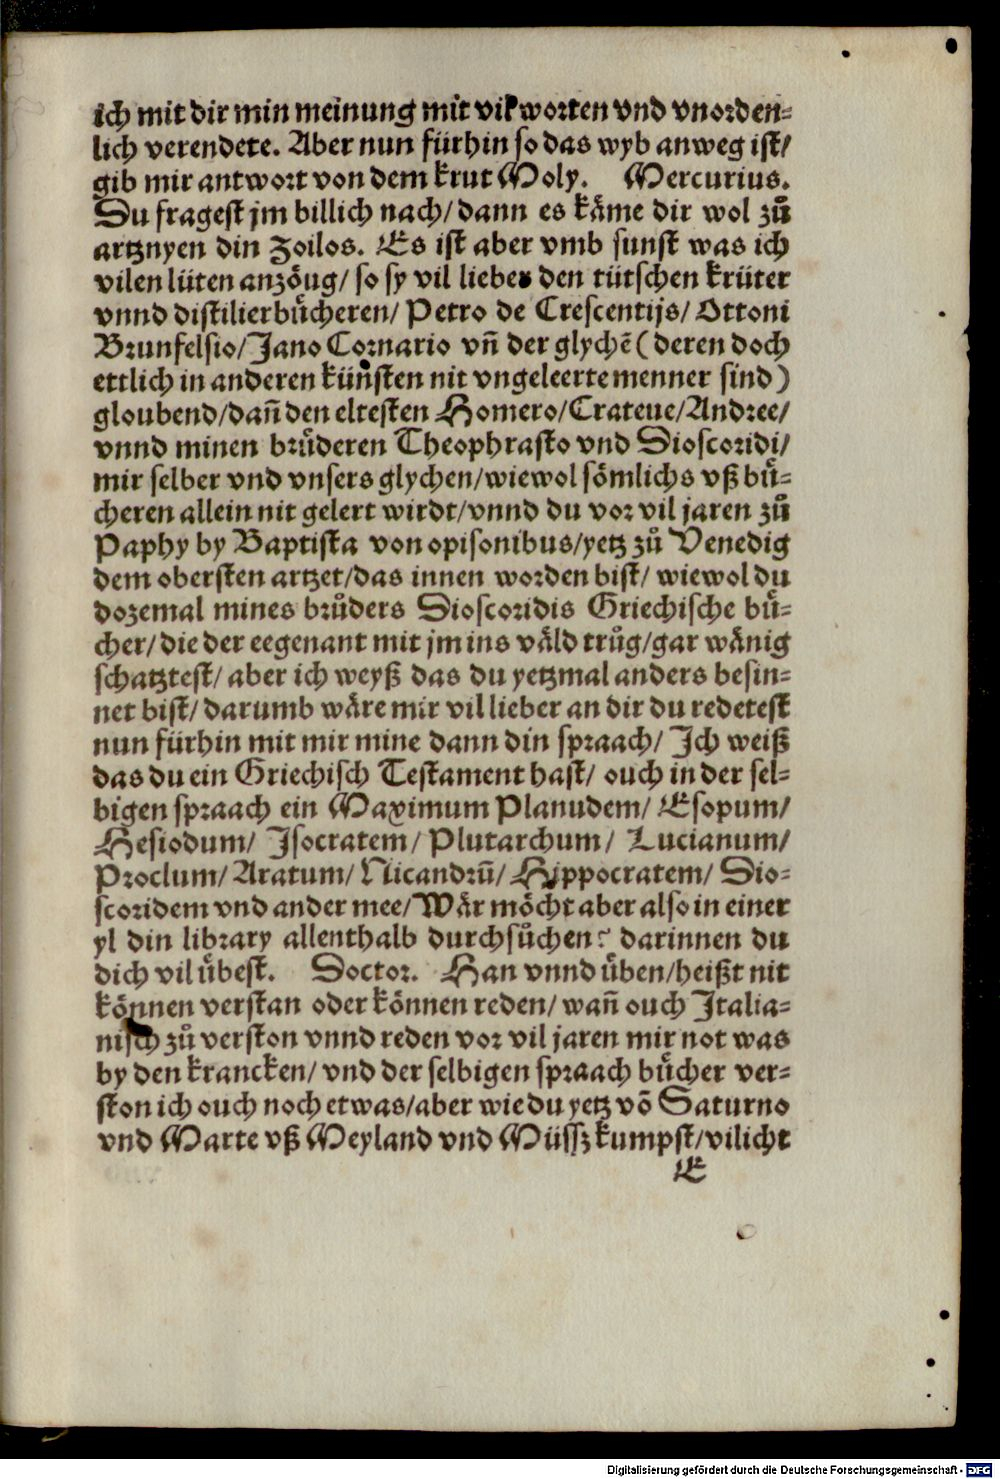 ich mit dir min meinung mit vil worten vnd vnorden⸗
lich verendete. Aber nun fürhin so das wyb anweg ist/
gib mir antwort von dem krut Moly. Mercurius.
Du fragest jm billich nach/ dann es käme dir wol zů
artznyen din Zoilos. Es ist aber vmb sunst was ich
vilen lüten anzöug/ so sy vil lieber den tütschen krüter
vnnd distilierbücheren/ Petro de Crescentijs/ Ottoni
Brunfelsio/ Jano Cornario vñ der glychẽ (deren doch
ettlich in anderen künsten nit vngeleerte menner sind)
gloubend/ dañ den eltesten Homero/ Crateue/ Andree/
vnnd minen brůderen Theophrasto vnd Dioscoridi/
mir selber vnd vnsers glychen/ wiewol sömlichs vß bü⸗
cheren allein nit gelert wirdt/ vnnd du vor vil jaren zů
Paphy by Baptista von opisonibus/ yetz zů Venedig
dem obersten artzet/ das innen worden bist/ wiewol du
dozemal mines brůders Dioscoridis Griechische bü⸗
cher/ die der eegenant mit jm ins väld trůg/ gar wänig
schatztest/ aber ich weyß das du yetzmal anders besin⸗
net bist/ darumb wäre mir vil lieber an dir du redetest
nun fürhin mit mir mine dann din spraach/ Ich weiß
das du ein Griechisch Testament hast/ ouch in der sel⸗
bigen spraach ein Maximum Planudem/ Esopum/
Hesiodum/ Isocratem/ Plutarchum/ Lucianum/
Proclum/ Aratum/ Nicandrũ/ Hippocratem/ Dio⸗
scoridem vnd ander mee/ Wär möcht aber also in einer
yl din library allenthalb durchsůchen? darinnen du
dich vil übest. Doctor. Han vnnd üben/ heißt nit
können verstan oder können reden/ wañ ouch Italia⸗
nisch zů verston vnnd reden vor vil jaren mir not was
by den krancken/ vnd der selbigen spraach bücher ver⸗
ston ich ouch noch etwas/ aber wie du yetz võ Saturno
vnd Marte vß Meyland vnd Müssz kumpst/ vilicht
E
Digitalisierung gefördert durch die Deutsche Forschungsgemeinschaft - DFG